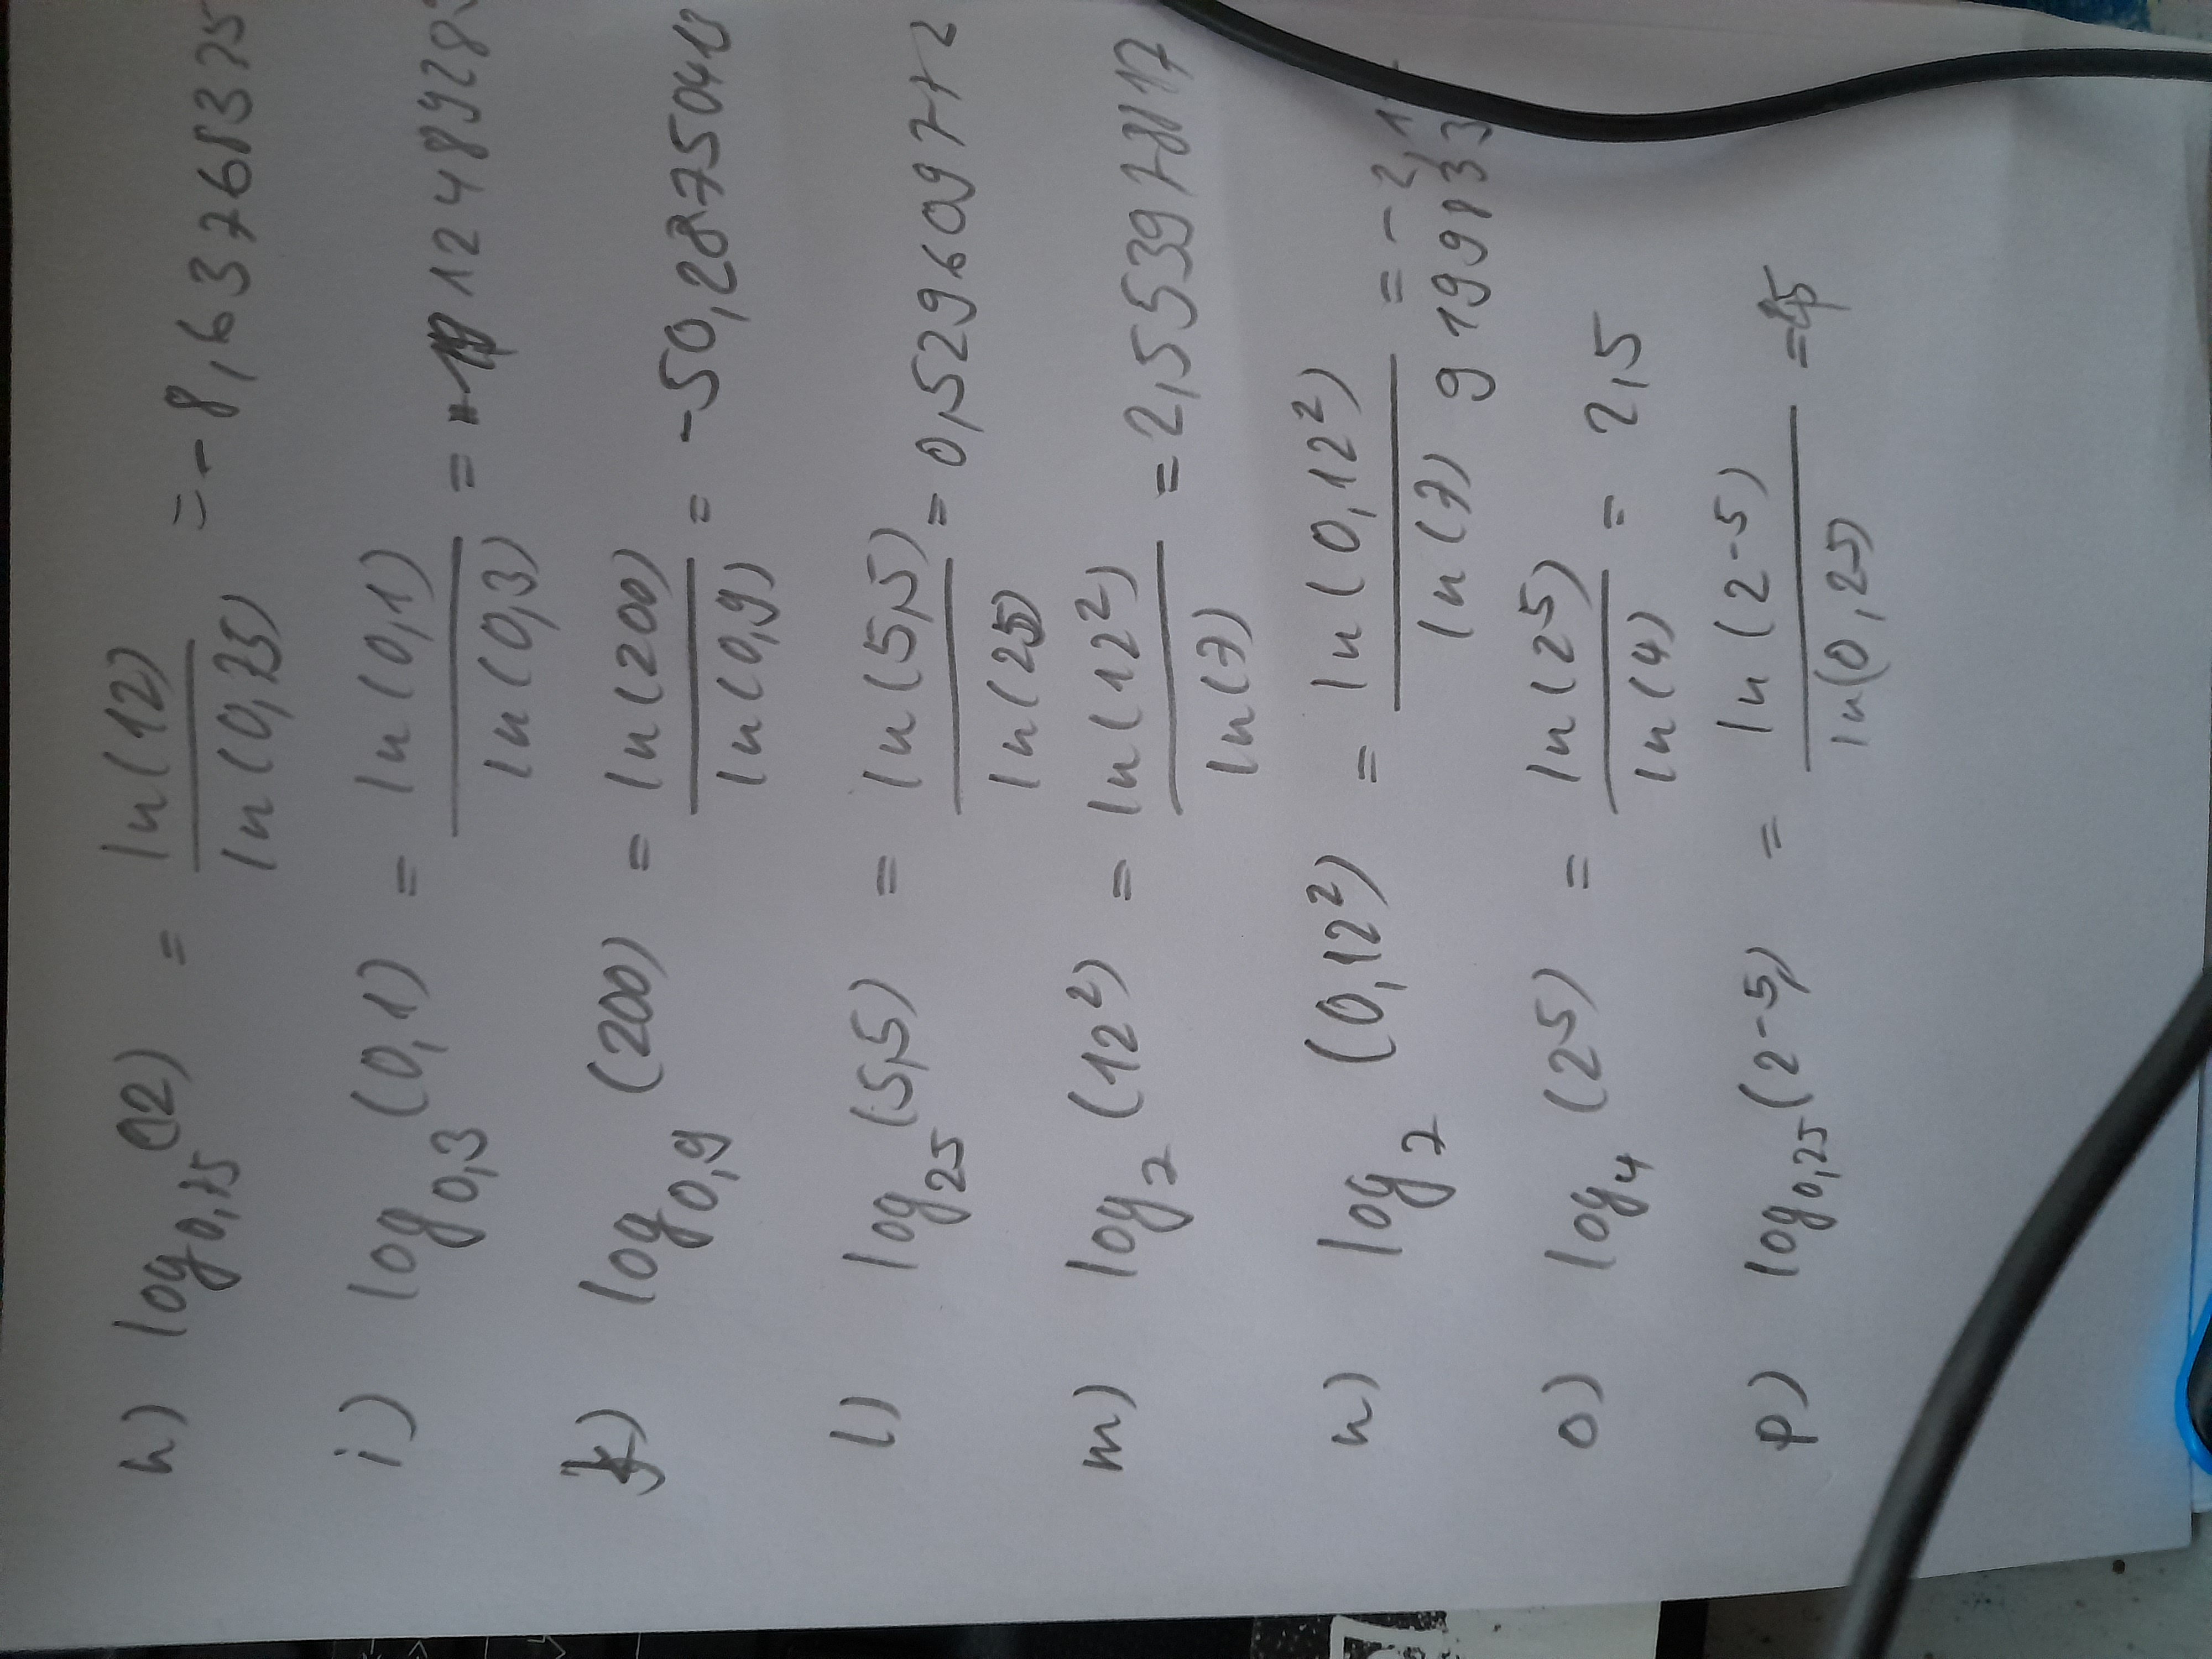 h) log₀,₇₅(12) = ln(12) / ln(0,75) = -8,63768375
i) log₀,₃(0,1) = ln(0,1) / ln(0,3) =
k) log₀,₉ (200) = ln(200) / ln(0,9) = -50,2875041
l) log₂₅(5,5) = ln(5,5) / ln(25) = 0,529609772
m) log₇(12²) = ln(12²) / ln(7) = 2,553978117
n) log₇ (0,12²) = ln(0,12²) / ln(7) = -2,1
9199833
o) log₄ (2⁵) = ln(2⁵) / ln(4) = 2,5
p) log₀,₂₅(2⁻⁵) = ln(2⁻⁵) / ln(0,25) =